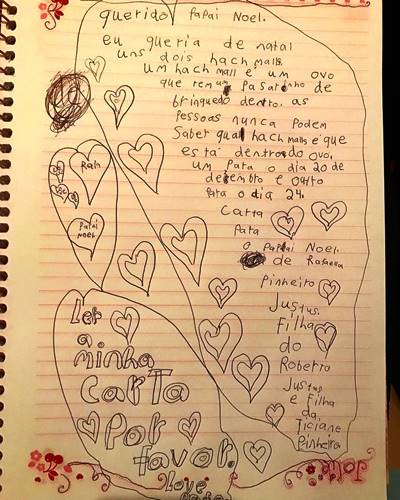 querido papai Noel.
eu queria de natal
uns dois hach malls.
um hach mall e um ovo
que rem um pasarinho de
brinquedo dentro. as
pessoas nunca podem
saber qual hach malls é que
está dentro do ovo.
um para o dia 20 de
dezembro e outro
para o dia 24.
carta
para
o papai Noel.
de Rafaella
Pinheiro
Justus.
Filha
do
Roberto
Justus
e Filha
da
Ticiane
Pinheiro
Rafa
Papai
Noel
Ler
a
minha
carta
por
favor.
Love